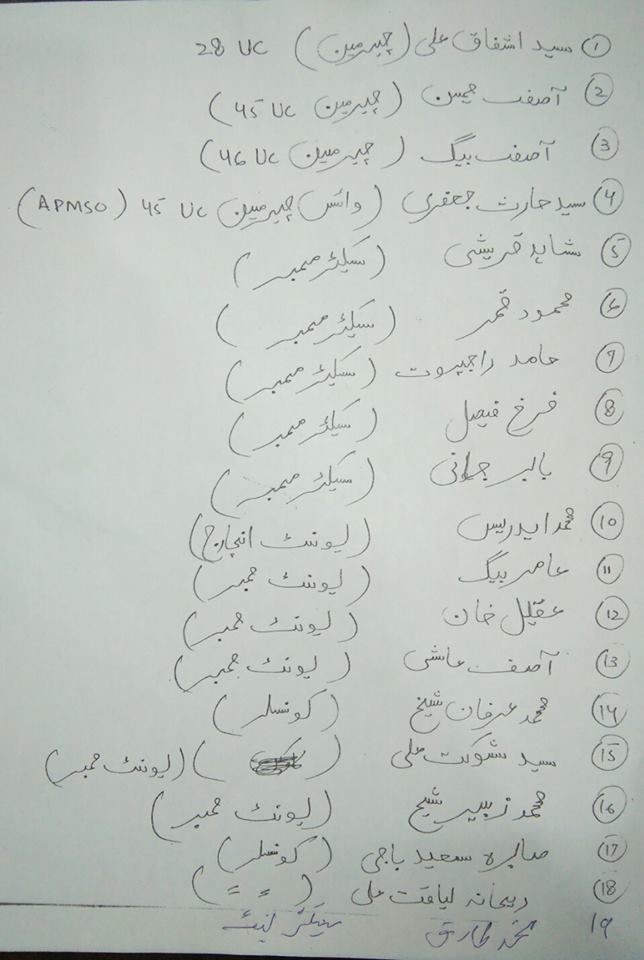 ① سید اشفاق علی (چیرمین) 28 UC
② آصف حسین (چیرمین 45 UC)
③ آصف بیگ (چیرمین 46 UC)
④ سید حارث جعفری (وائس چیرمین 45 UC (APMSO)
⑤ شاہد قریشی (سیکٹر ممبر)
⑥ محمود قمر (سیکٹر ممبر)
⑦ حامد راجپوت (سیکٹر ممبر)
⑧ فرخ فیصل (سیکٹر ممبر)
⑨ بابر (سیکٹر ممبر)
⑩ محمد ادریس (یونٹ انچارج)
⑪ عامر بیگ (یونٹ ممبر)
⑫ عقیل خان (یونٹ ممبر)
⑬ آصف عاشی (یونٹ ممبر)
⑭ محمد عرفان شیخ (کونسلر)
⑮ سید شوکت علی ( ) (یونٹ ممبر)
⑯ محمد زبیر شیخ (یونٹ ممبر)
⑰ صابرہ سعید باجی (کونسلر)
⑱ ریحانہ لیاقت علی ( = = )
19 محمد طارق سیکٹر